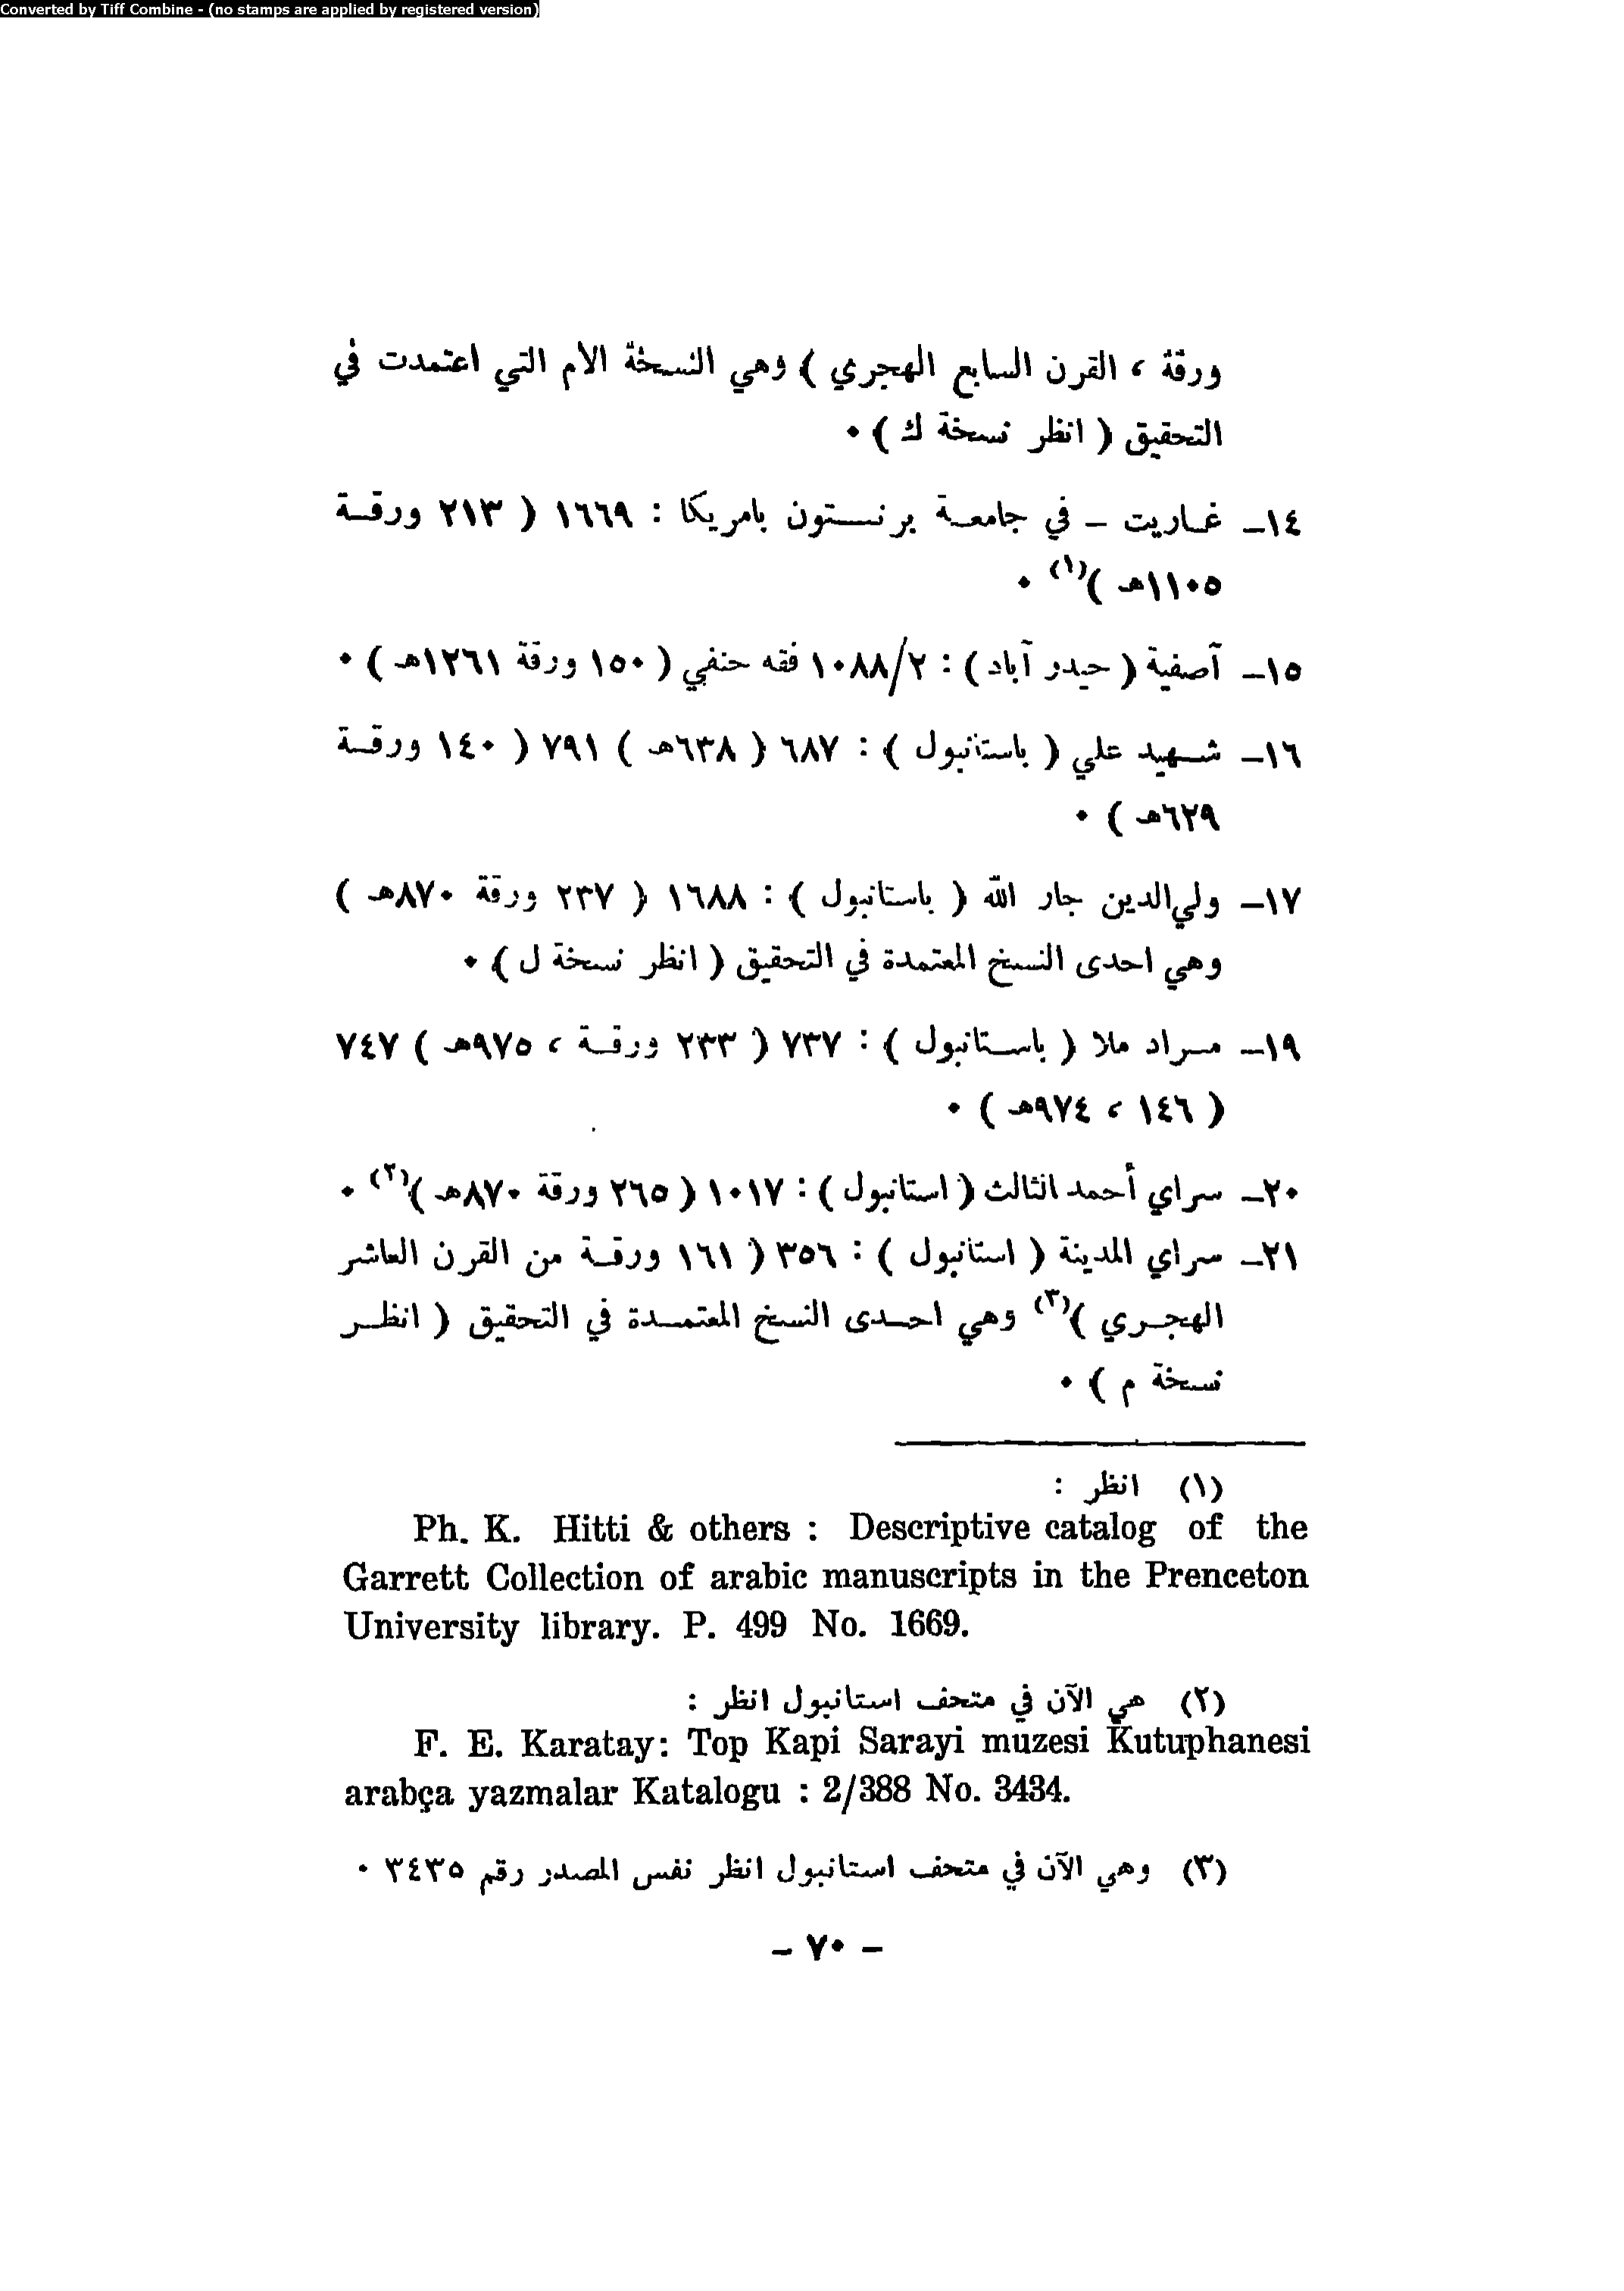 Converted by Tiff Combine - (no stamps are applied by registered version)
ورقة ، القرن السابع الهجري ) وهي النسخة الام التي اعتمدت في
التحقيق ( انظر نسخة ك ) ٠
١٤ـ غاريت - في جامعة برنستون بامريكا : ١٦٦٩ ( ٢١٣ ورقة
١١٠٥هـ )(١) ٠
١٥ـ آصفية ( حيدر آباد ) : ١٠٨٨/٢ فقه حنفي ( ١٥٠ ورقة ١٢٦١هـ ) ٠
١٦ـ شهيد علي ( باستانبول ) : ٦٨٧ ( ٦٣٨هـ ) ٧٩١ ( ١٤٠ ورقة
٦٢٩هـ ) ٠
١٧ـ ولي الدين جار الله ( باستانبول ) : ١٦٨٨ ( ٢٣٧ ورقة ٨٧٠هـ )
وهي احدى النسخ المعتمدة في التحقيق ( انظر نسخة ل ) ٠
١٩ـ مراد ملا ( باستانبول ) : ٧٣٧ ( ٢٣٣ ورقة ، ٩٧٥هـ ) ٧٤٧
( ١٤٦ ، ٩٧٤هـ ) ٠
٢٠ـ سراي أحمد الثالث ( استانبول ) : ١٠١٧ ( ٢٦٥ ورقة ٨٧٠هـ )(٢) ٠
٢١ـ سراي المدينة ( استانبول ) : ٣٥٦ ( ١٦١ ورقة من القرن العاشر
الهجري )(٣) وهي احدى النسخ المعتمدة في التحقيق ( انظر
نسخة م ) ٠
(١) انظر :
Ph. K. Hitti & others : Descriptive catalog of the
Garrett Collection of arabic manuscripts in the Prenceton
University library. P. 499 No. 1669.
(٢) هي الآن في متحف استانبول انظر :
F. E. Karatay: Top Kapi Sarayi muzesi Kutuphanesi
arabça yazmalar Katalogu : 2/388 No. 3434.
(٣) وهي الآن في متحف استانبول انظر نفس المصدر رقم ٣٤٣٥ ٠
- ٧٠ -